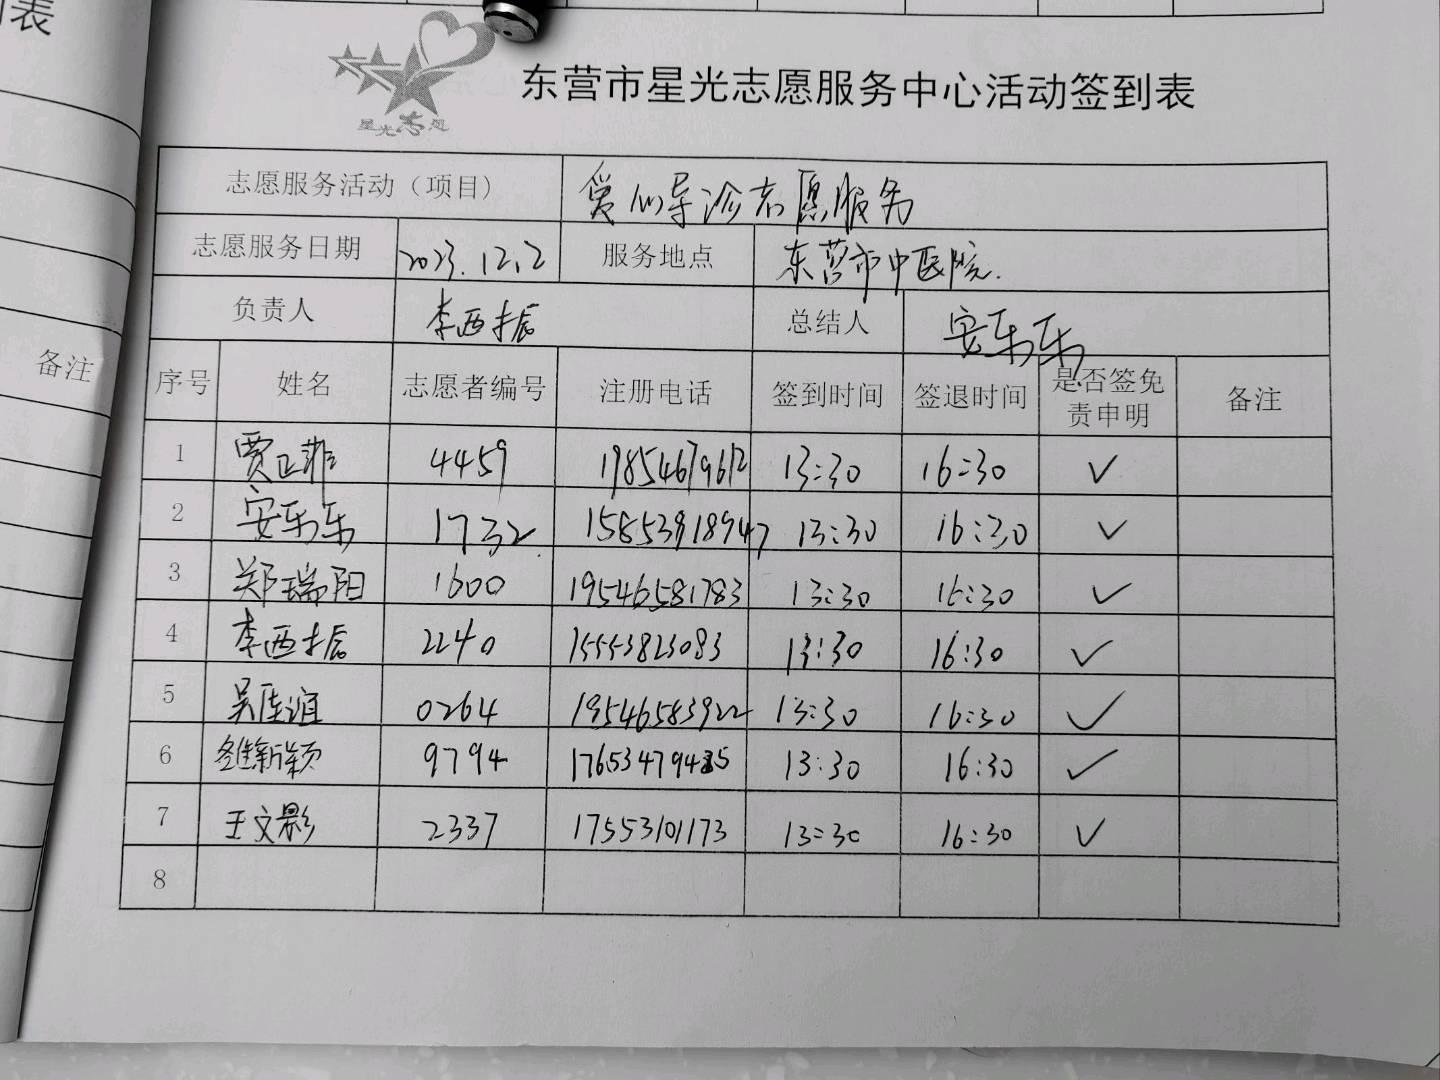 表
备注
星光志愿
东营市星光志愿服务中心活动签到表
志愿服务活动（项目） 爱心导诊志愿服务
志愿服务日期 2023.12.2 服务地点 东营市中医院.
负责人 李西振 总结人 安乐乐
序号 姓名 志愿者编号 注册电话 签到时间 签退时间 是否签免责申明 备注
1 贾正菲 4459 19854679612 13:30 16:30 ✓
2 安乐乐 1732 15853918947 13:30 16:30 ✓
3 郑瑞阳 1600 19546581783 13:30 16:30 ✓
4 李西振 2240 15553823083 13:30 16:30 ✓
5 吴佳谊 0264 19546583922 13:30 16:30 ✓
6 新颖 9794 13:30 16:30 ✓
7 王文影 2337 17553101173 13:30 16:30 ✓
8